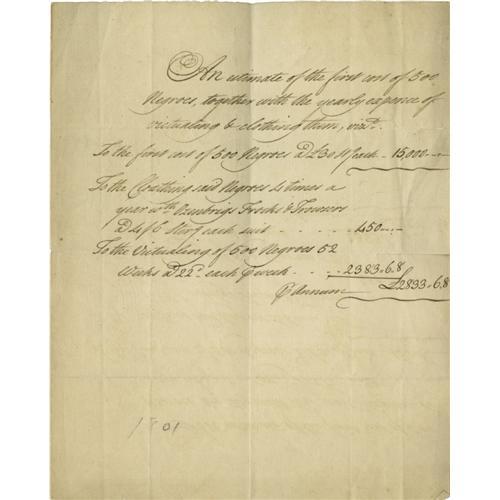 An estimate of the first cost of 500
Negroes, together with the yearly expence of
victualing & cloathing them, vizt.
To the first cost of 500 Negroes @ £30 each - 15,000 -.-
To the Cloathing said Negroes 4 times a
year wth. Ozenbrigs Frocks & Trowsers
@ 4/6 Sterg each suit - - - - - 450 -.-
To the Victualing of 500 Negroes 52
Weeks @ 22d. each p week - - - - 2383.6.8
p Annum £2833.6.8
1801